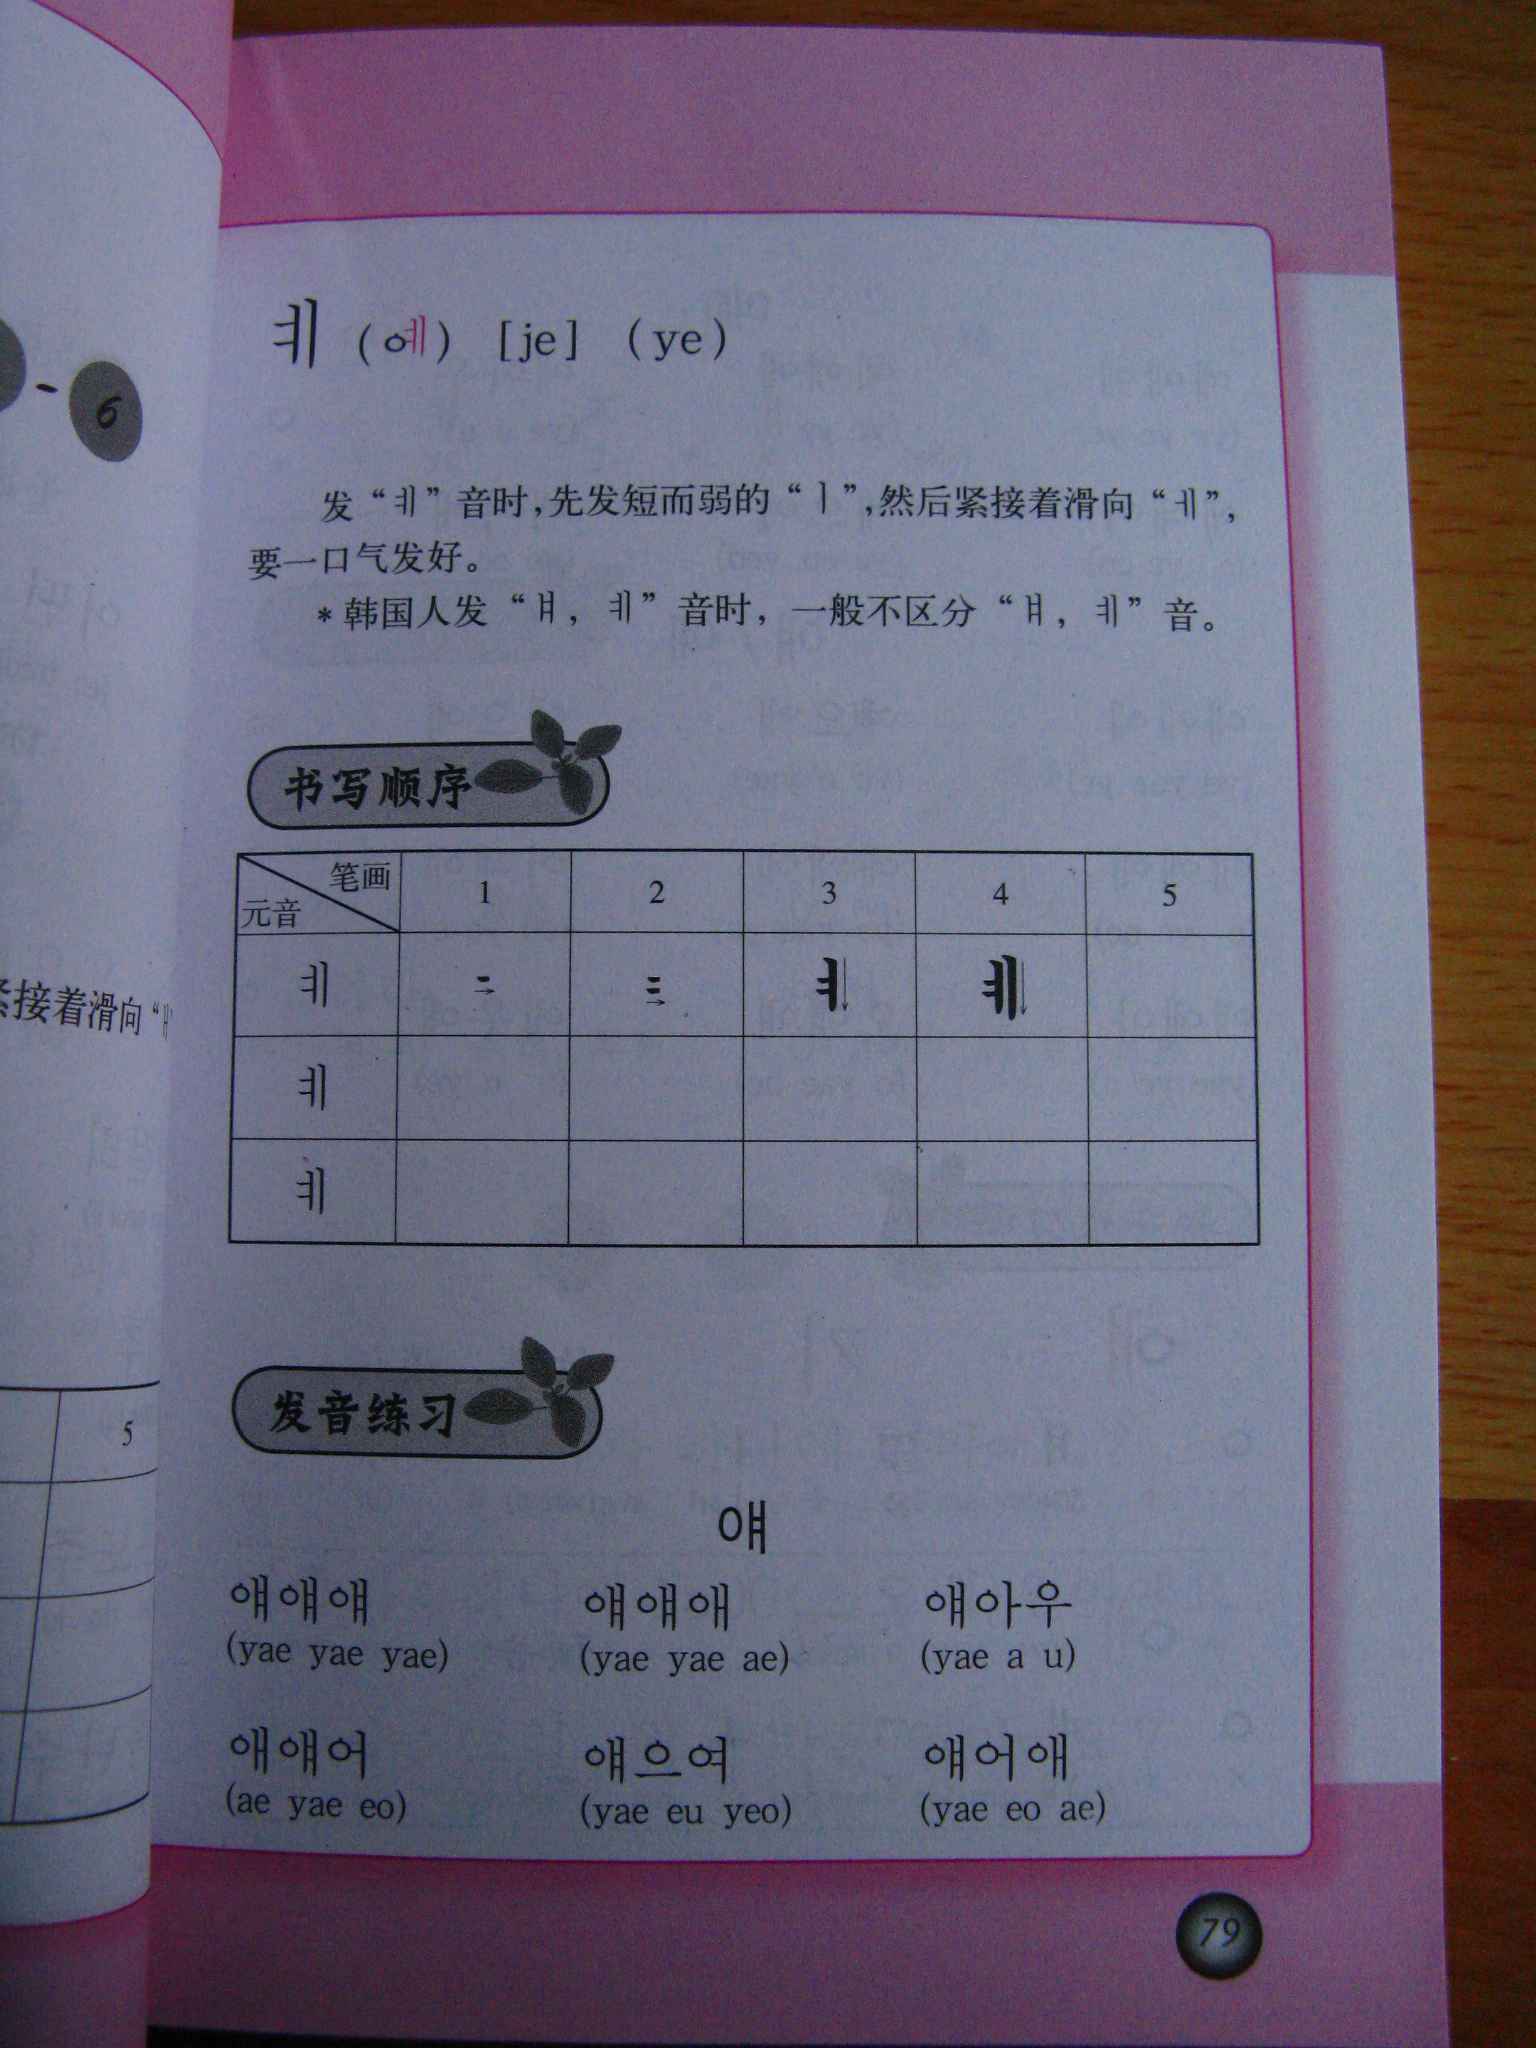 6
紧接着滑向“ㅐ
5
ㅖ (예) [je] (ye)
发“ㅖ”音时,先发短而弱的“ㅣ”,然后紧接着滑向“ㅔ”,
要一口气发好。
*韩国人发“ㅒ, ㅖ”音时, 一般不区分“ㅒ, ㅖ”音。
书写顺序
笔画 元音 1 2 3 4 5
ㅖ - = ㅕ ㅖ
ㅖ
ㅖ
发音练习
얘
얘얘얘 얘얘애 얘아우
(yae yae yae) (yae yae ae) (yae a u)
애얘어 얘으여 얘어애
(ae yae eo) (yae eu yeo) (yae eo ae)
79